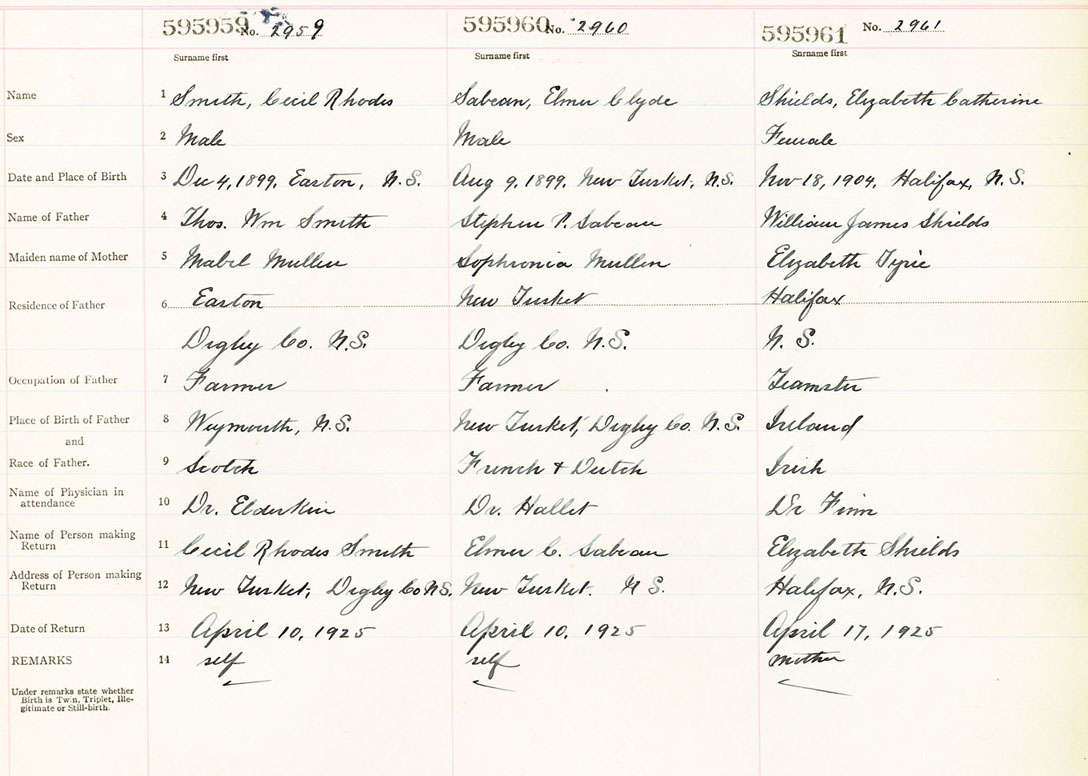 595959 No. 2959 595960 No. 2960 595961 No. 2961
Surname first Surname first Surname first
Name 1 Smith, Cecil Rhodes Sabean, Elmer Clyde Shields, Elizabeth Catherine
Sex 2 Male Male Female
Date and Place of Birth 3 Dec 4, 1899, Easton, N.S. Aug 9, 1899, New Tusket, N.S. Nov 18, 1904, Halifax, N.S.
Name of Father 4 Thos. Wm Smith Stephen P. Sabean William James Shields
Maiden name of Mother 5 Mabel Mullen Sophronia Mullen Elizabeth Tyrie
Residence of Father 6 Easton New Tusket Halifax
Digby Co. N.S. Digby Co. N.S. N. S.
Occupation of Father 7 Farmer Farmer Teamster
Place of Birth of Father 8 Weymouth, N.S. New Tusket, Digby Co. N.S. Ireland
and
Race of Father. 9 Scotch French & Dutch Irish
Name of Physician in
attendance 10 Dr. Elderkin Dr. Hallet Dr Finn
Name of Person making
Return 11 Cecil Rhodes Smith Elmer C. Sabean Elizabeth Shields
Address of Person making
Return 12 New Tusket, Digby Co N.S. New Tusket. N S. Halifax, N.S.
Date of Return 13 April 10, 1925 April 10, 1925 April 17, 1925
REMARKS 14 self self mother
Under remarks state whether
Birth is Twin, Triplet, Ille-
gitimate or Still-birth.